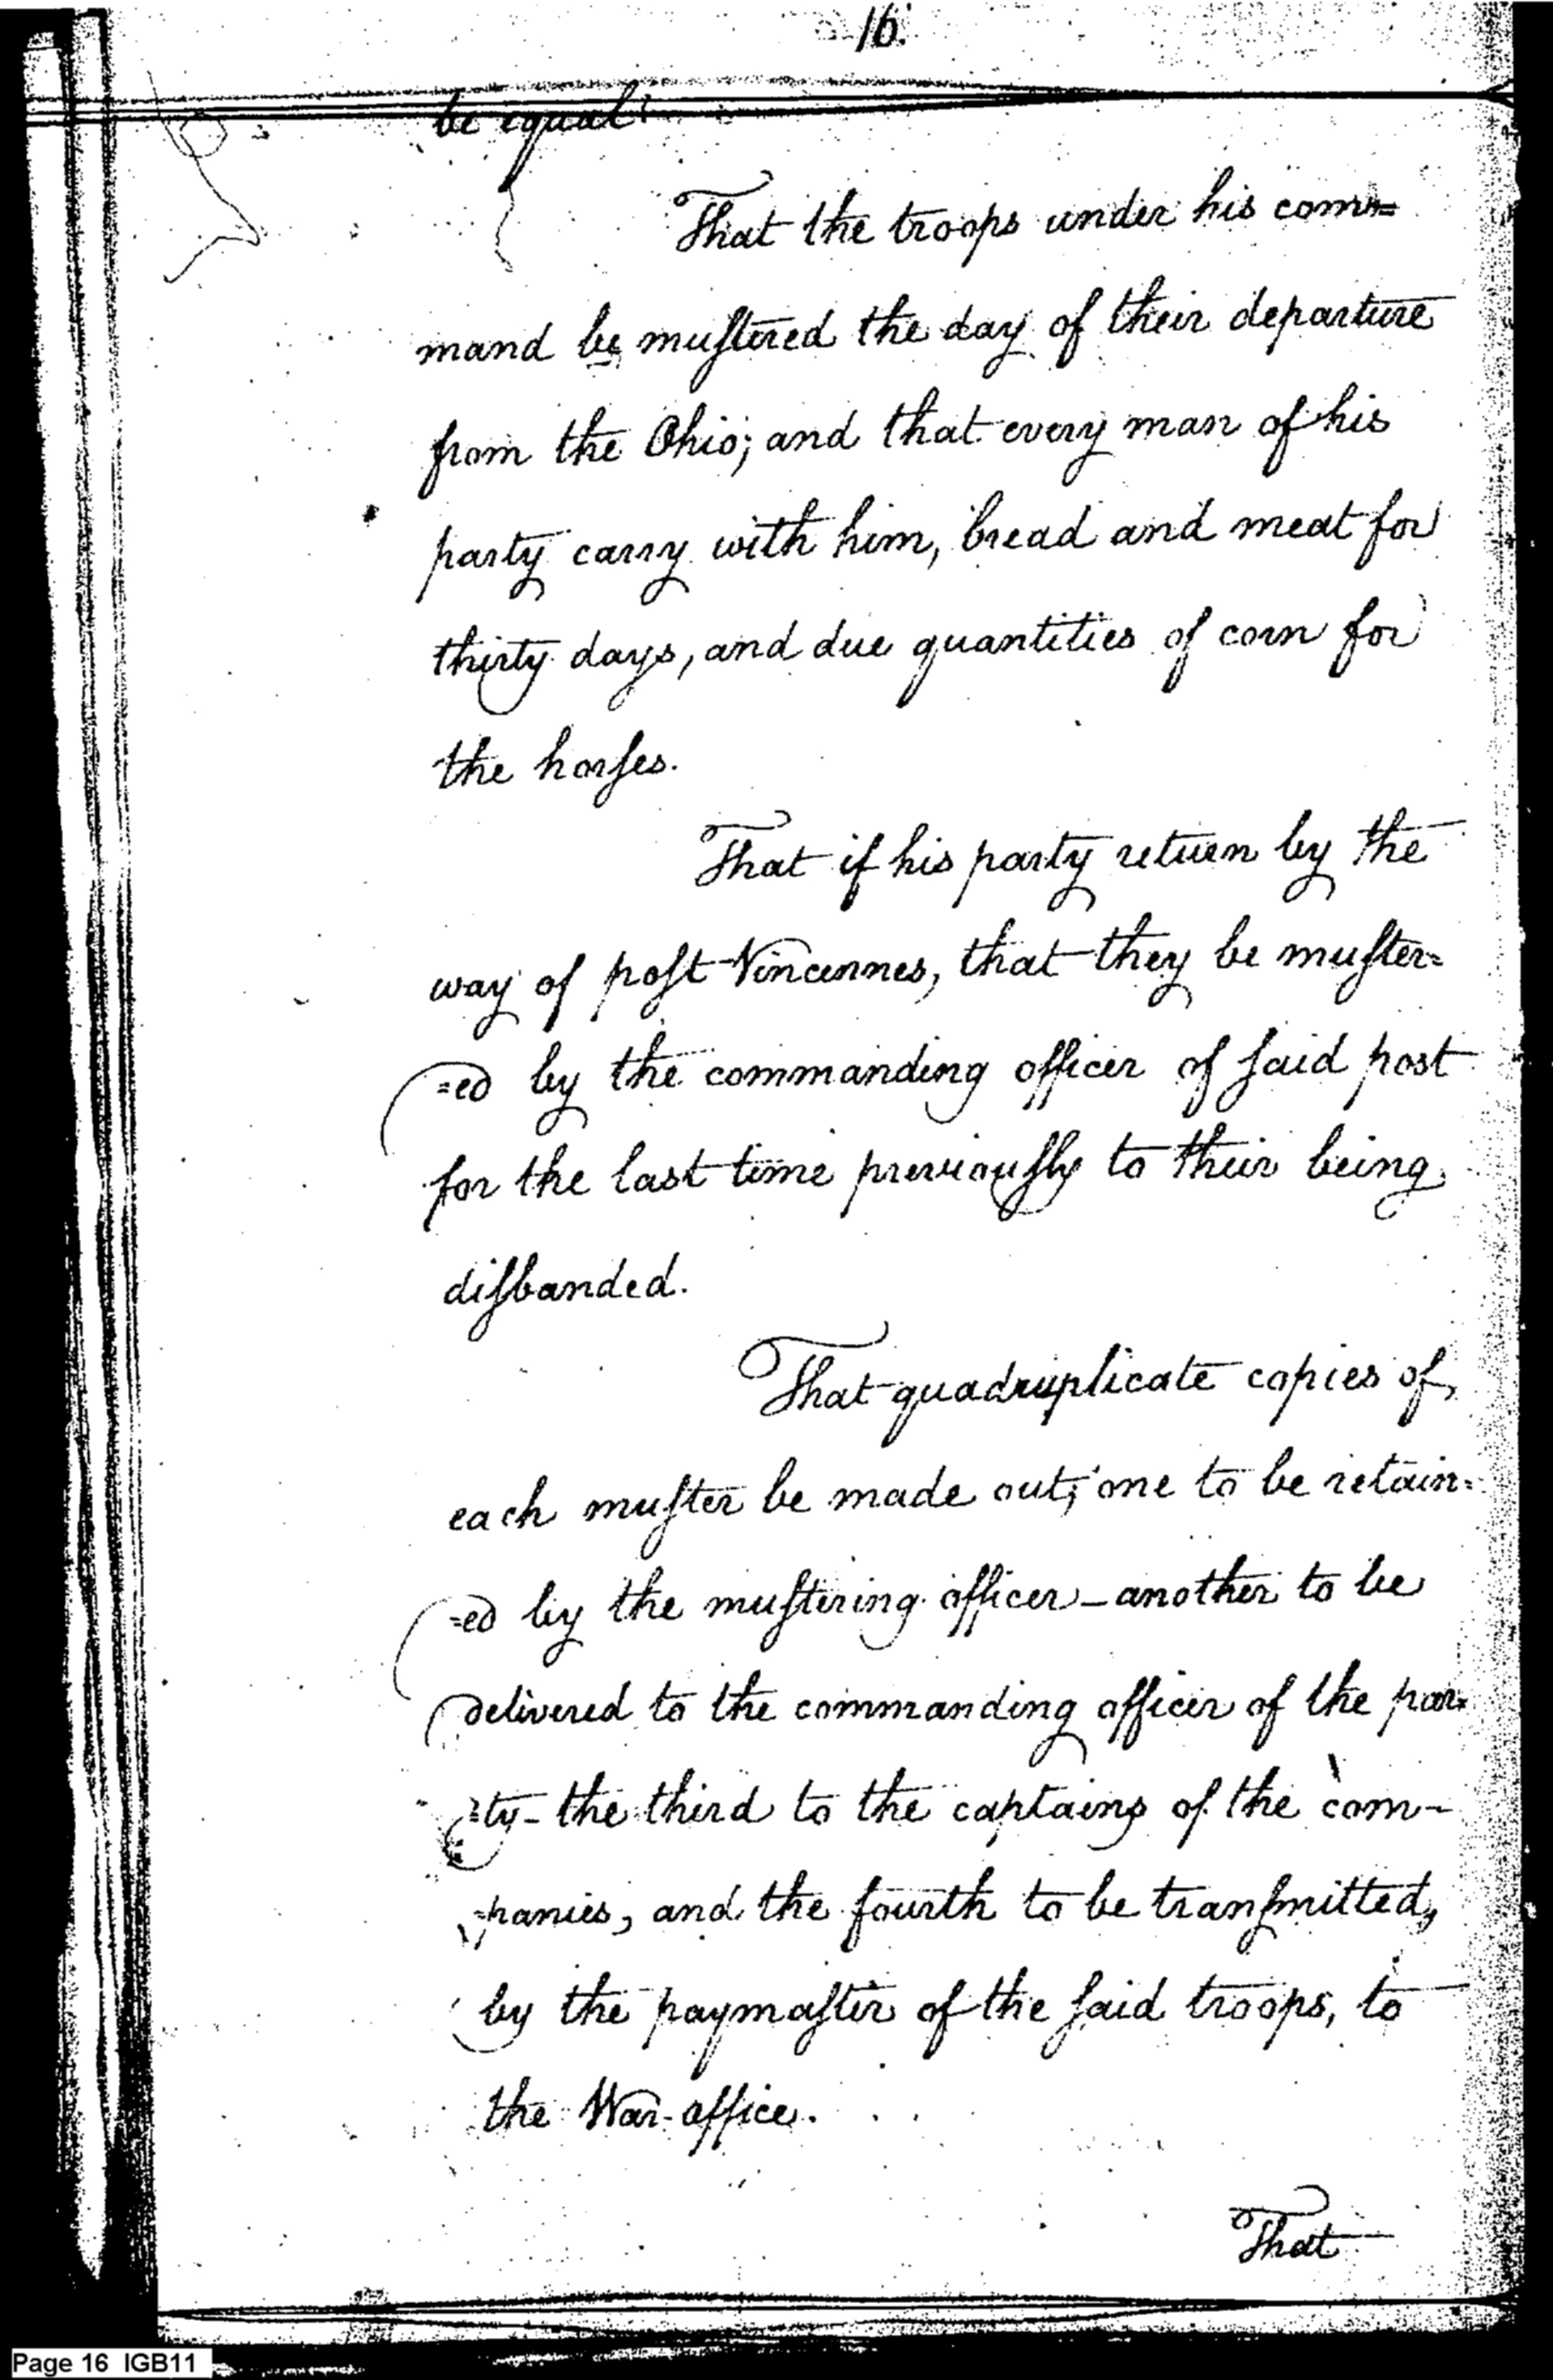 16.
be equal
That the troops under his com=
mand be mustered the day of their departure
from the Ohio; and that every man of his
party carry with him, bread and meat for
thirty days, and due quantities of corn for
the horses.
That if his party return by the
way of post Vincennes, that they be muster=
=ed by the commanding officer of said post
for the last time previously to their being
disbanded.
That quadruplicate copies of,
each muster be made out; one to be retain=
=ed by the mustering officer - another to be
delivered to the commanding officer of the par=
=ty - the third to the captains of the com-
=panies, and the fourth to be transmitted,
by the paymaster of the said troops, to
the War-office.
That
Page 16 IGB11